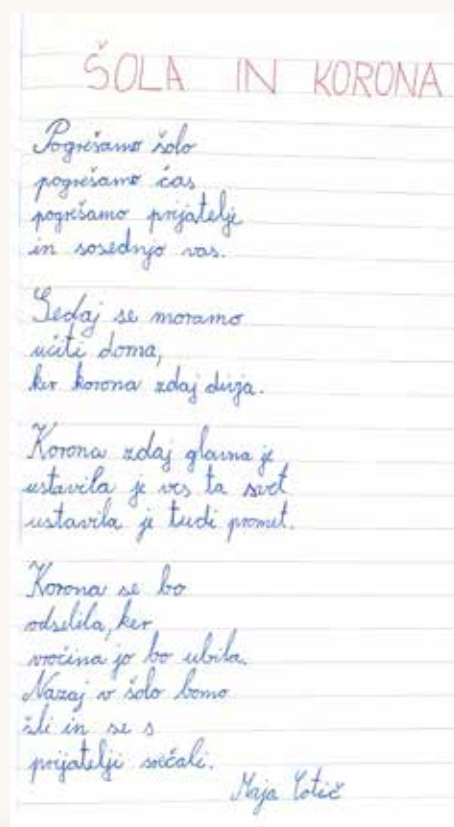 ŠOLA IN KORONA
Pogrešamo šolo
pogrešamo čas
pogrešamo prijatelje
in sosednjo vas.
Sedaj se moramo
učiti doma,
ker korona zdaj divja.
Korona zdaj glavna je
ustavila je ves ta svet
ustavila je tudi promet.
Korona se bo
odselila, ker
vročina jo bo ubila.
Nazaj v šolo bomo
šli in se s
prijatelji srečali.
Maja Cotič